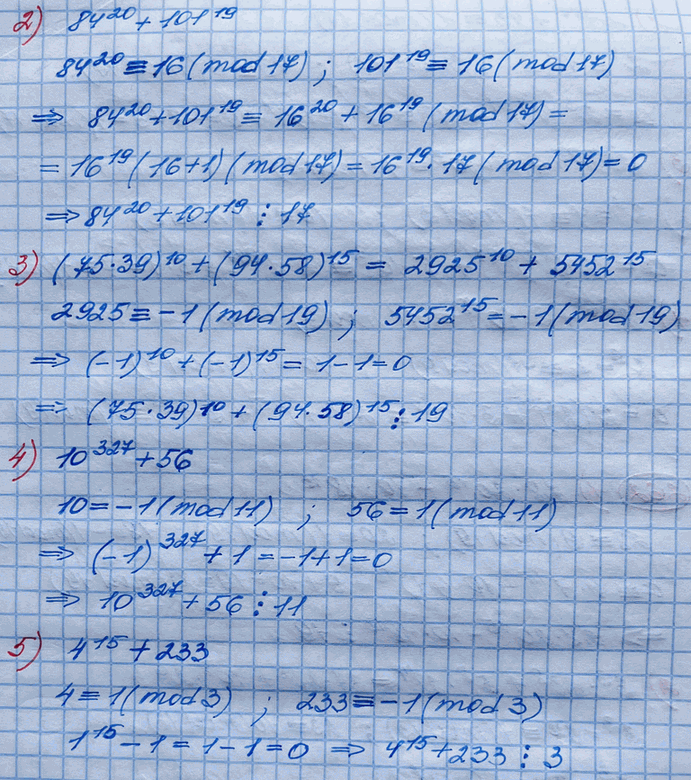 2) 84²⁰ + 101¹⁹
84²⁰ ≡ 16 (mod 17) ; 101¹⁹ ≡ 16 (mod 17)
⇒ 84²⁰ + 101¹⁹ ≡ 16²⁰ + 16¹⁹ (mod 17) =
= 16¹⁹ (16+1) (mod 17) = 16¹⁹ · 17 (mod 17) = 0
⇒ 84²⁰ + 101¹⁹ ⋮ 17
3) (75·39)¹⁰ + (94·58)¹⁵ = 2925¹⁰ + 5452¹⁵
2925 ≡ -1 (mod 19) ; 5452¹⁵ = -1 (mod 19)
⇒ (-1)¹⁰ + (-1)¹⁵ = 1 - 1 = 0
⇒ (75·39)¹⁰ + (94·58)¹⁵ ⋮ 19
4) 10³²⁷ + 56
10 = -1 (mod 11) ; 56 = 1 (mod 11)
⇒ (-1)³²⁷ + 1 = -1 + 1 = 0
⇒ 10³²⁷ + 56 ⋮ 11
5) 4¹⁵ + 233
4 ≡ 1 (mod 3) ; 233 ≡ -1 (mod 3)
1¹⁵ - 1 = 1 - 1 = 0 ⇒ 4¹⁵ + 233 ⋮ 3